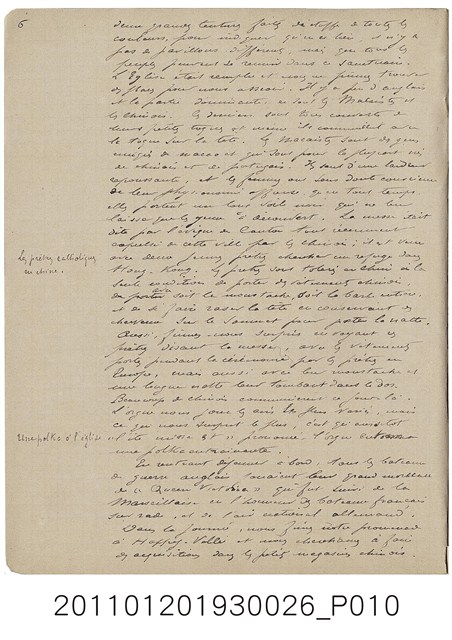 6
deux grandes tentures faites d'étoffe de toutes les
couleurs, pour indiquer qu'en ce lieu, il n'y a
pas de pavillons différents, mais que tous les
peuples peuvent se réunir dans ce sanctuaire.
L'Eglise était remplie et nous ne pûmes trouver
des places pour nous asseoir. Il y a peu d'anglais
et la partie dominante, ce sont les Macaïstes et
les chinois. Ces derniers sont tous couverts de
leurs petites toques et même ils communient avec
la toque sur la tête. Les Macaïstes sont des gens
de chinois et de portugais. Ils sont d'une laideur
repoussante, et les femmes ont sans doute conscience
de leur physionomie affreuse, car en tout temps
elles portent un long voile noir qui ne leur
laisse que les yeux à découvert. La messe était
dite par l'évêque de Canton tout récemment
de cette ville par les chinois; il est venu
avec deux jeunes prêtres chercher un refuge dans
Les prêtres catholiques
en chine.
Hong-Kong. Les prêtres sont tolérés en chine à la
seule condition de porter des vêtements chinois,
de porter soit la moustache, soit la barbe entière
et de se faire raser la tête en conservant des
cheveux sur le sommet pour porter la natte.
Aussi, fûmes-nous surpris en voyant ces
prêtres disant la messe, avec les vêtements
portés pendant la cérémonie par les prêtres en
Europe, mais aussi avec leur moustache et
une longue natte leur tombant dans le dos.
Beaucoup de chinois communièrent ce jour-là.
L'orgue nous joua les airs les plus variés, mais
ce qui nous surprit le plus, c'est qu'aussitôt
Une polka à l'église
l'ite missa est prononcé, l'orgue entonna
une polka entraînante.
En rentrant déjeuner à bord, tous les bateaux
de guerre anglais jouaient leur grand morceau
de "Queen Victoria" qui fut suivi de la
Marseillaise en l'honneur des bateaux français
sur rade, et de l'air national allemand.
Dans la journée, nous fîmes notre promenade
à Happy-Valley et nous cherchâmes à faire
des acquisitions dans les petits magasins chinois.
201101201930026_P010